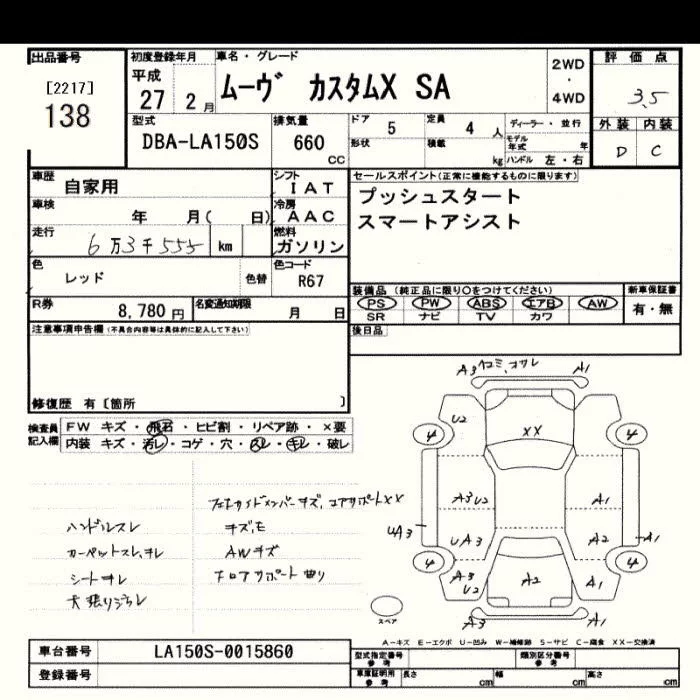 出品番号 初度登録年月 車名・グレード 評価点
[2217] 平成 ムーヴ カスタムX SA 2WD
138 27 2月 ・ 4WD 3.5
型式 排気量 ドア 5 定員 4人 ディーラー・並行 外装 内装
DBA-LA150S 660 CC 形状 積載 kg モデル年式 年 ハンドル 左・右 D C
車歴 自家用 シフト IAT セールスポイント(正常に機能するものに限ります)
車検 年 月( 日) 冷房 AAC プッシュスタート
走行 6万3千555 km 燃料 ガソリン スマートアシスト
色 レッド 色替 色コード R67
装備品 (純正品に限り○をつけてください) 新車保証書
R券 8,780円 名変通知期限 月 日 PS PW ABS エアB AW 有・無
SR ナビ TV カワ
注意事項申告欄(不具合内容等は具体的に記入して下さい) 後日品
修復歴 有〔箇所 〕
検査員記入欄 FW キズ・飛石・ヒビ割・リペア跡・×要
内装 キズ・汚レ・コゲ・穴・スレ・キレ・破レ
A3 ヘコミ、コワレ A1
U2
4 XX 4
A3 U2 A1
UA3 UA3 A2 A1
4 A3 U2 A2 A1 4
A3 A1
コアサポートXX
ハンドルスレ キズ、モ
カーペットスレ、ヨレ AWキズ
シートヨレ フロアサポート曲り
天張リヨゴレ
スペア
A-キズ E-エクボ U-凹み W-補修跡 S-サビ C-腐食 XX-交換済
車台番号 LA150S-0015860 型式指定番号 参考 類別区分番号 参考
登録番号 車庫証明用 参考 長さ cm 幅 cm 高さ cm